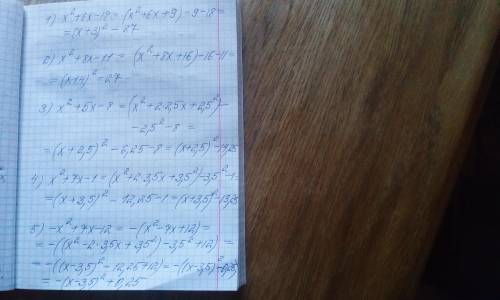 1) x²+6x-18=(x²+6x+9)-9-18=
=(x+3)²-27
2) x²+8x-11= (x²+8x+16)-16-11=
=(x+4)²-27
3) x²+5x-8=(x²+2·2,5x+2,5²)-
-2,5²-8=
=(x+2,5)²-6,25-8=(x+2,5)²-14,25
4) x²+7x-1=(x²+2·3,5x+3,5²)-3,5²-1=
=(x+3,5)²-12,25-1=(x+3,5)²-13,25
5) -x²+7x-12=-(x²-7x+12)=
=-((x²-2·3,5x+3,5²)-3,5²+12)=
=-((x-3,5)²-12,25+12)=-((x-3,5)²-0,25)
=-(x-3,5)²+0,25